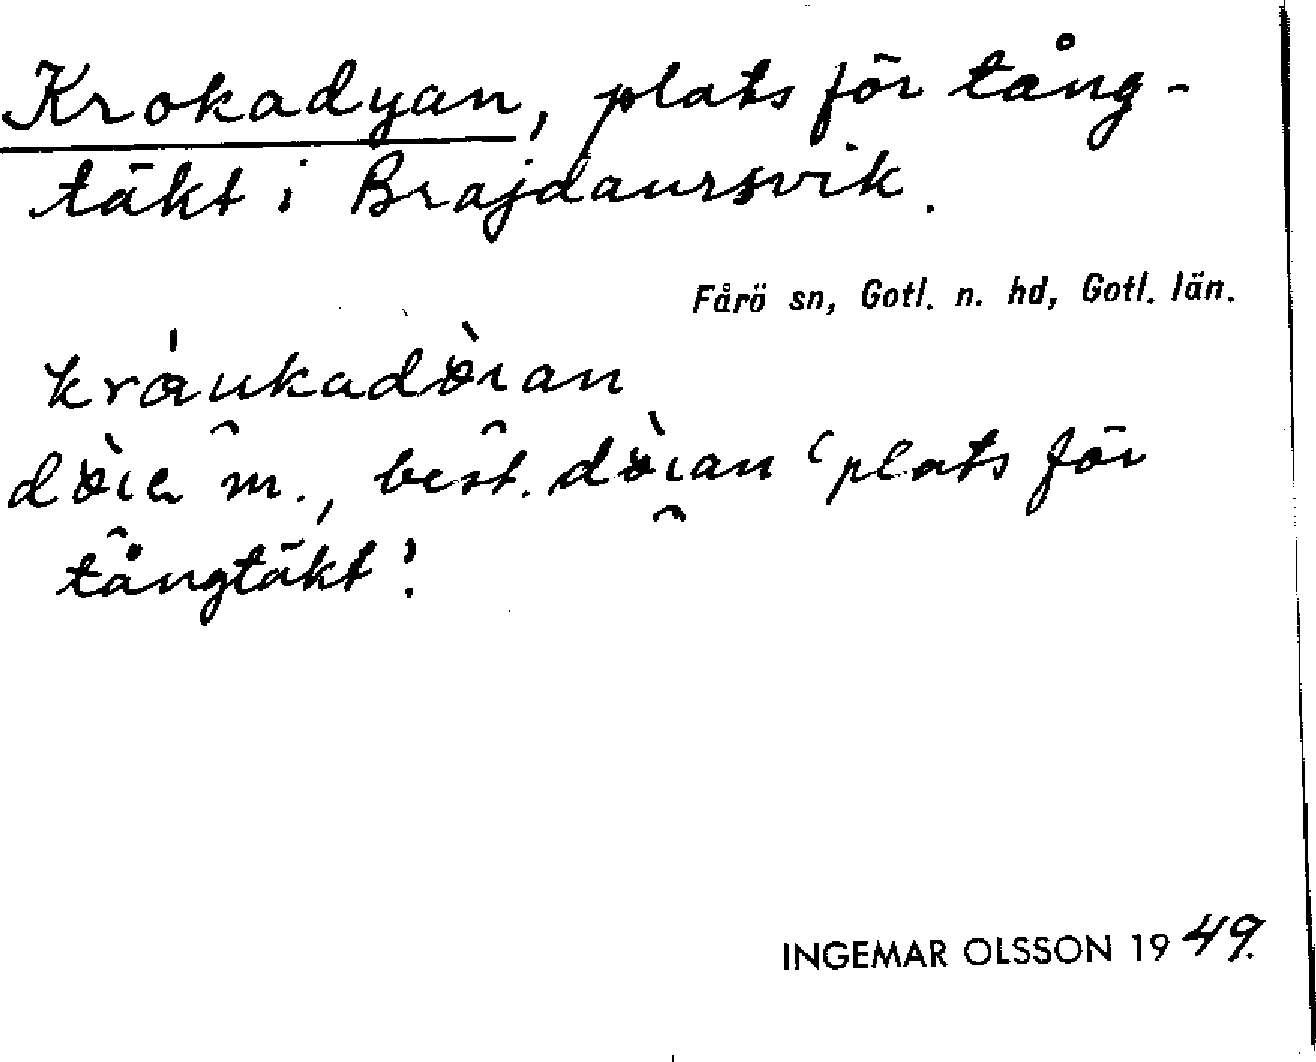 Krokadyan, plats för tång-
täkt i Brajdaursvik.
Fårö sn, Gotl. n. hd, Gotl. län.
best.
m.,
'plats för
tångtäkt'.
INGEMAR OLSSON 1949.